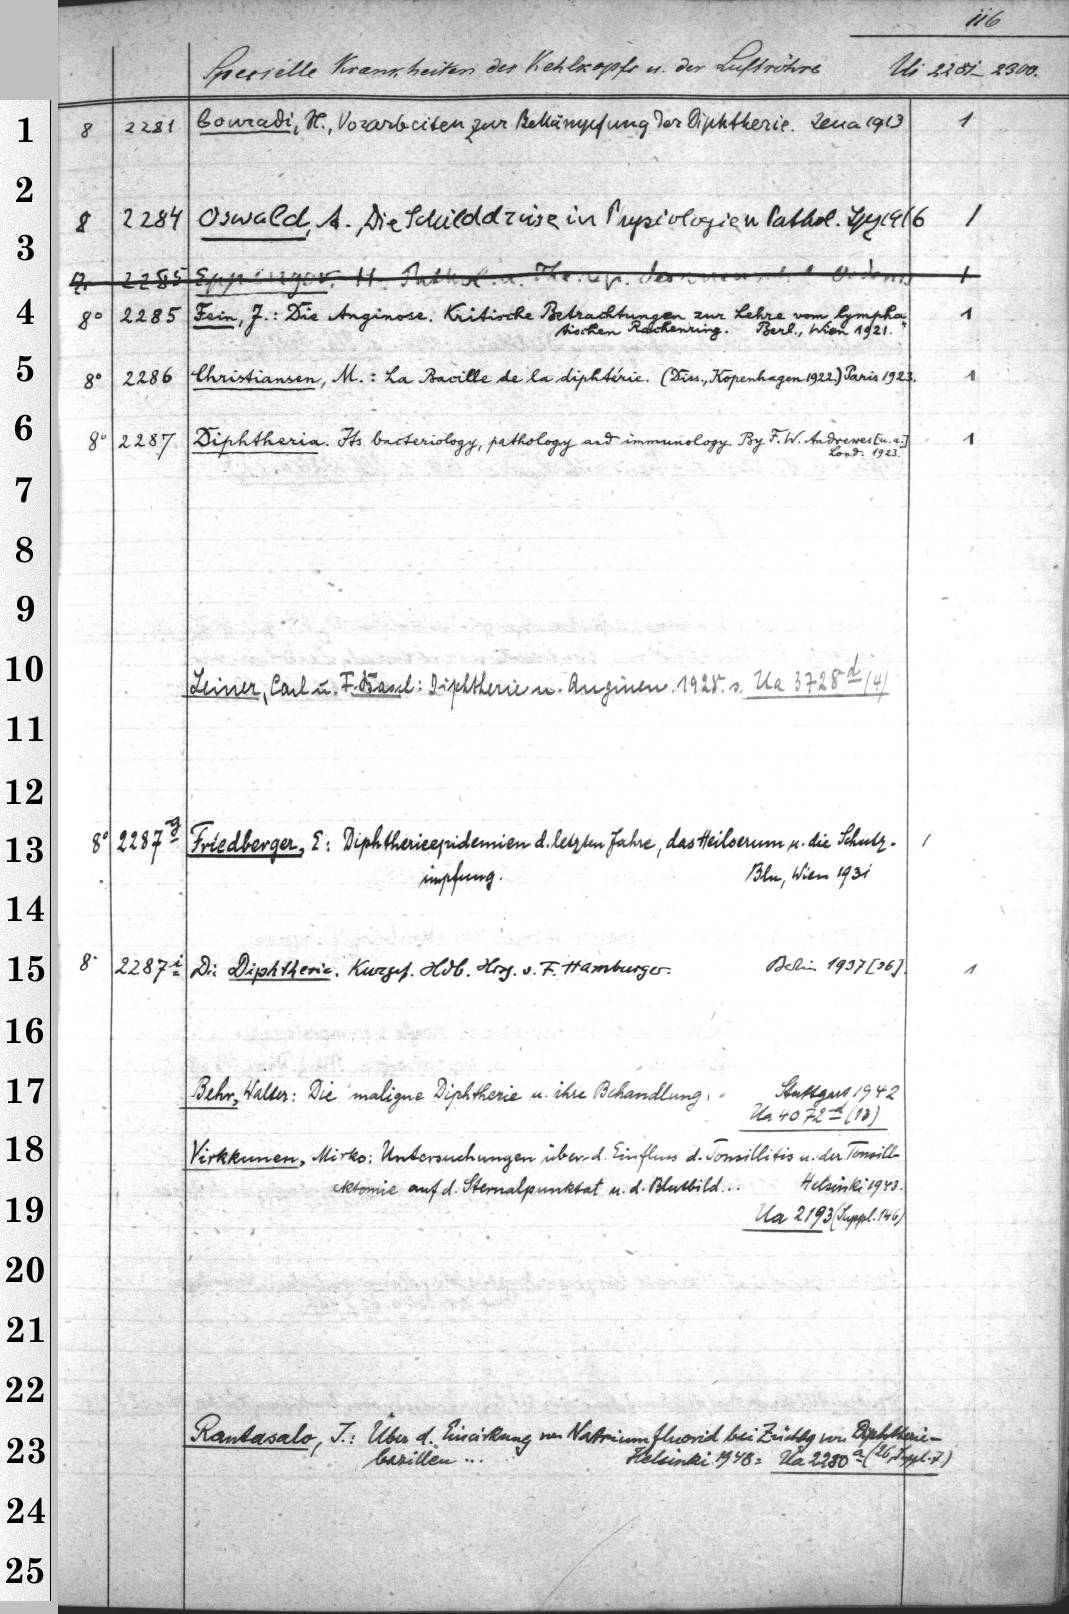 116
Spezielle Krankheiten des Kehlkopfs u. der Luftröhre Ui 2281–2300.
1 8 2281 Conradi, H., Vorarbeiten zur Bekämpfung der Diphtherie. Jena 1913 1
2
8 2284 Oswald, A., Die Schilddrüse in Physiologie u Pathol. Lpz 1916 1
3
2285 Eppinger, H. Pathol. u. Therap. 1
4 8° 2285 Fein, J.: Die Anginose. Kritische Betrachtungen zur Lehre vom lympha 1
tischen Rachenring. Berl., Wien 1921.
5 8° 2286 Christiansen, M.: La Bacille de la diphtérie. (Diss., Kopenhagen 1922.) Paris 1923. 1
6 8° 2287 Diphtheria. Its bacteriology, pathology and immunology. By F. W. Andrewes [u. a.] 1
Lond. 1923.
7
8
9
10 Leiner, Carl u. F. Basch: Diphtherie u. Anginen. 1928. s. Ua 3728 d (4)
11
12
13 8° 2287 g Friedberger, E: Diphtherieepidemien d. letzten Jahre, das Heilserum u. die Schutz- 1
impfung. Bln, Wien 1931
14
15 8° 2287 i Die Diphtherie. Kurzgef. Hdb. Hrsg. v. F. Hamburger. Berlin 1937 [36]. 1
16
17 Behr, Walter: Die maligne Diphtherie u. ihre Behandlung. Stuttgart 1942
Ua 4072 d (13)
18 Virkkunen, Mirko: Untersuchungen über d. Einfluss d. Tonsillitis u. der Tonsill-
ektomie auf d. Sternalpunktat u. d. Blutbild... Helsinki 1943.
19 Ua 2193 (Suppl. 146)
20
21
22
23 Rantasalo, I.: Über d. Einwirkung von Natriumfluorid bei Züchtg von Diphtherie-
bazillen ... Helsinki 1948 = Ua 2280 a (26, Suppl. 7)
24
25